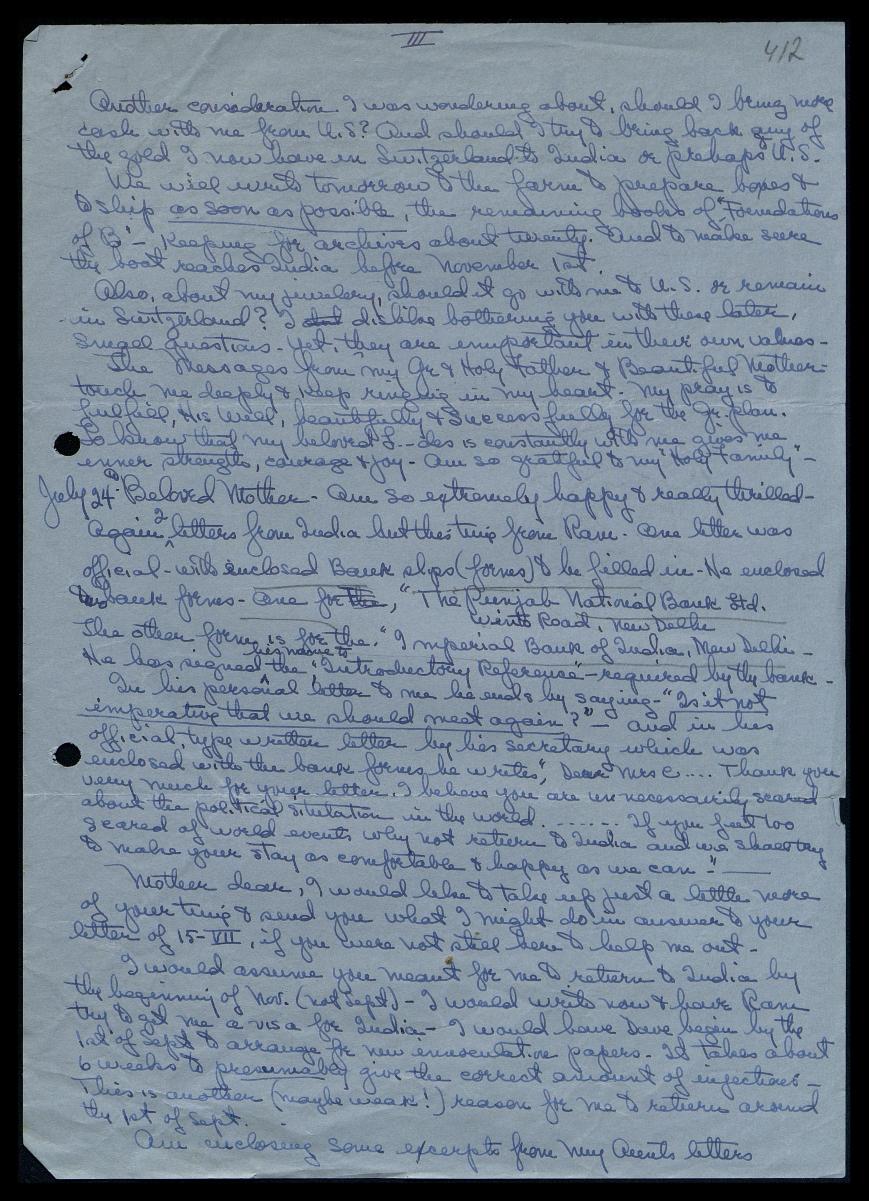 III
412
Another consideration. I was wondering about, should I bring more
cash with me from U.S? And should I try to bring back any of
the gold I now have in Switzerland to India or prehaps U.S.
We will write tomorrow to the farm to prepare boxes &
to ship as soon as possible, the remaining books of "Foundations
of B" - Keeping for archives about twenty. And to make sure
the boat reaches India before November 1st.
Also, about my jewelry, should it go with me to U.S. or remain
in Switzerland? I dislike bothering you with these later,
smal questions - yet, they are important in their own values -
The Messages from my Gr & Holy Father & Beautiful Mother
touch me deeply & keep ringing in my heart. My pray is to
fulfill, His Will, beautifully & successfully for the Gr. plan.
To know that my beloved is constantly with me gives me
inner strength, courage & joy - Am so grateful to my "Holy Family" -
July 24th Beloved Mother - Am so extremely happy & really thrilled -
Again 2 letters from India but this time from Ram. One letter was
official - with enclosed Bank slips (forms) to be filled in - He enclosed
two bank forms - One for "The Punjab National Bank Ltd.
Road, New Delhi
The other form is for the "Imperial Bank of India, New Delhi -
He has signed his name to the "Introductory Reference" - required by the bank -
In his personal letter to me he ends by saying - "Is it not
imperative that we should meet again?" - and in his
official, type written letter by his secretary which was
enclosed with the bank forms he writes, "Dear Mrs C.... Thank you
very much for your letter. I believe you are unnecessarily scared
about the political situtation in the world. ...... If you feel too
scared of world events why not return to India and we shall try
to make your stay as comfortable & happy as we can -"
Mother dear, I would like to take up just a little more
of your time & send you what I might do in answer to your
letter of 15-VII, if you were not still here to help me out -
I would assume you meant for me to return to India by
the beginning of Nov. (not Sept) - I would write now & have Ram
try to get me a visa for India - I would have Dave begin by the
1st of Sept to arrange for new papers - It takes about
6 weeks to presumably give the correct amount of injections -
This is another (maybe weak!) reason for me to return around
the 1st of Sept.
Am enclosing some excerpts from my Aunts letters